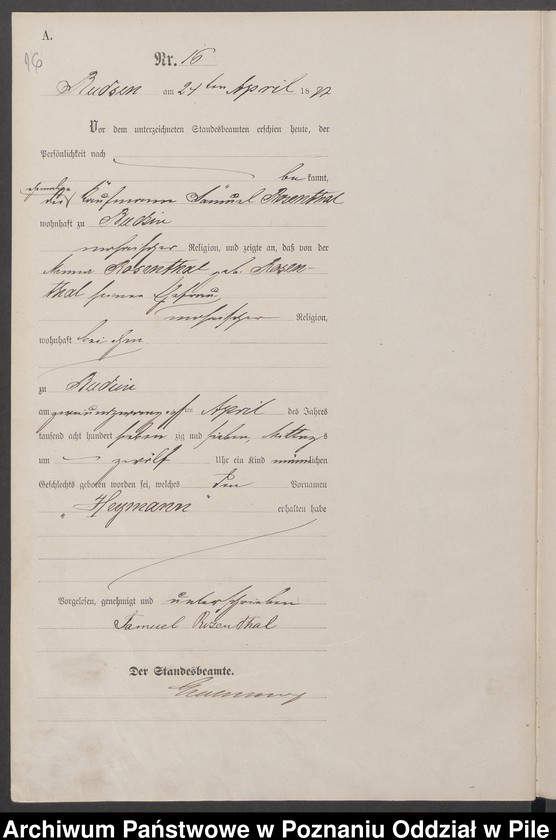 A.
16
Nr. 16
Budsin am 24ten April 1877
Vor dem unterzeichneten Standesbeamten erschien heute, der
Persönlichkeit nach
bekannt,
der Kaufmann Samuel Rosenthal
wohnhaft zu Budsin
mosaischer Religion, und zeigte an, daß von der
Rosenthal geb. Rosen-
thal seiner Ehefrau,
mosaischer Religion,
wohnhaft bei ihm
zu Budsin
am April des Jahres
tausend acht hundert siebenzig und sieben, Mittags
um zwölf Uhr ein Kind männlichen
Geschlechts geboren worden sei, welches den Vornamen
„Heymann“ erhalten habe
Vorgelesen, genehmigt und unterschrieben
Samuel Rosenthal
Der Standesbeamte.
Archiwum Państwowe w Poznaniu Oddział w Pile